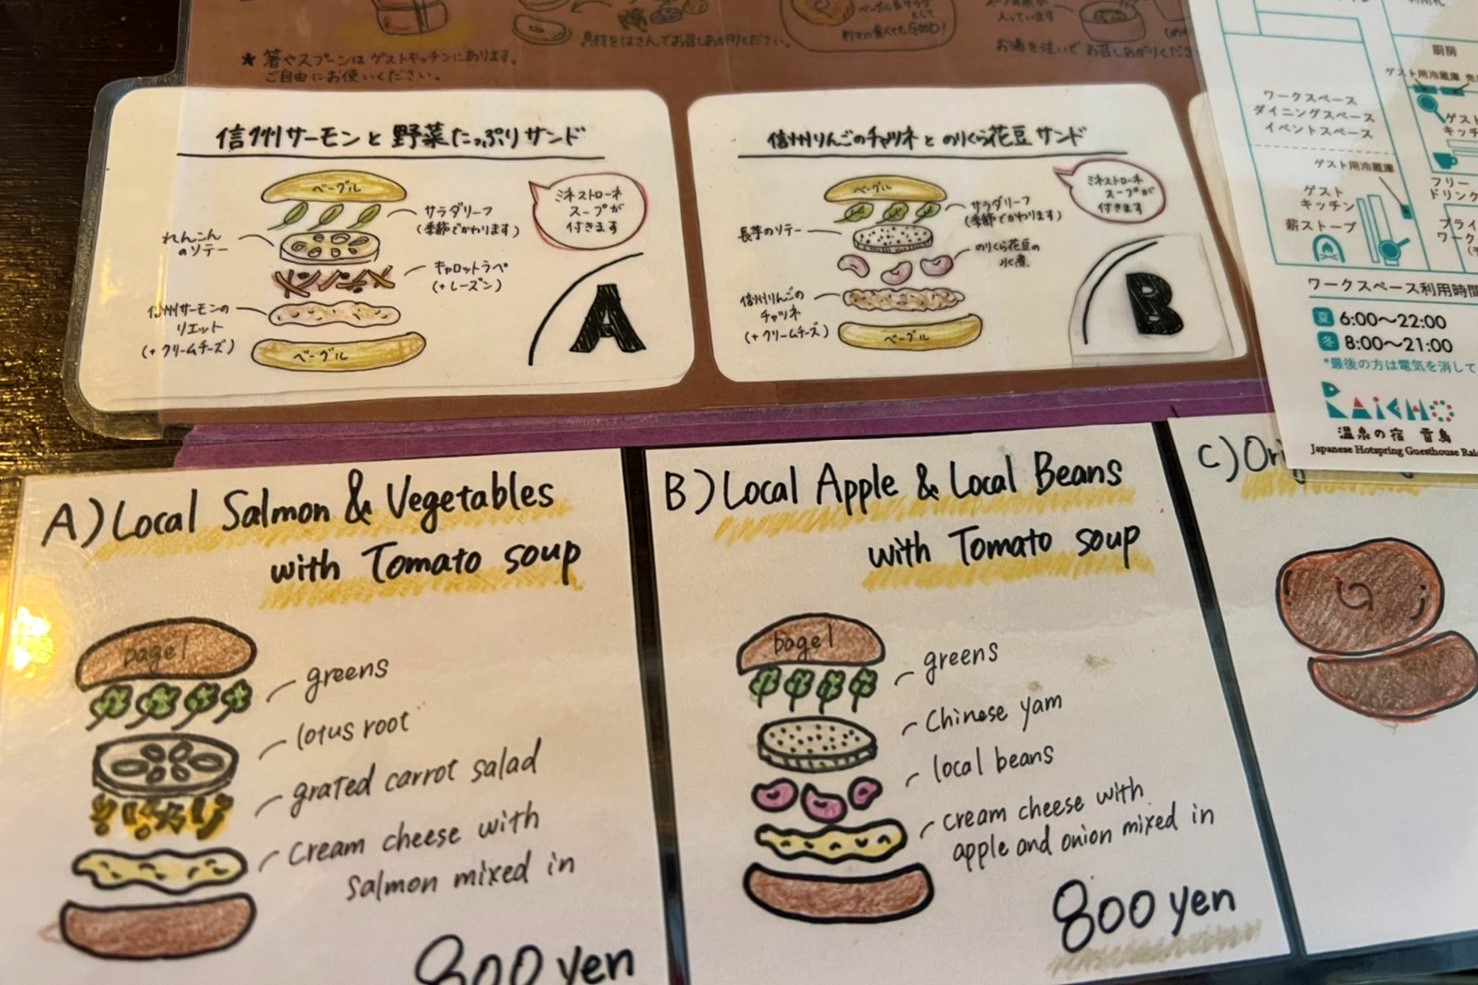 ★ 箸やスプーンはゲストキッチンにあります。
ご自由にお使いください。
具材をはさんでお召しあがりください。
入っています
お湯を注いでお召しあがりくださ
信州サーモンと野菜たっぷりサンド
ベーグル
サラダリーフ
(季節でかわります)
れんこん
のソテー
キャロットラペ
(+レーズン)
信州サーモンの
リエット
(+クリームチーズ)
ベーグル
ミネストローネ
スープが
付きます
A
信州りんごのチャツネとのりくら花豆サンド
ベーグル
サラダリーフ
(季節でかわります)
長芋のソテー
のりくら花豆の
水煮
信州りんごの
チャツネ
(+クリームチーズ)
ベーグル
ミネストローネ
スープが
付きます
B
厨房
ワークスペース
ダイニングスペース
イベントスペース
ゲスト用冷蔵庫
ゲスト用冷蔵庫
ゲスト
キッチン
薪ストーブ
フリー
ドリンク
ワークスペース利用時間
夏 6:00〜22:00
冬 8:00〜21:00
*最後の方は電気を消して
RAiCHO
温泉の宿 雷鳥
Japanese Hotspring Guesthouse Rai
A) Local Salmon & Vegetables
with Tomato soup
bagel
greens
lotus root
grated carrot salad
cream cheese with
salmon mixed in
800 yen
B) Local Apple & Local Beans
with Tomato soup
bagel
greens
Chinese yam
local beans
cream cheese with
apple and onion mixed in
800 yen
C) Ori